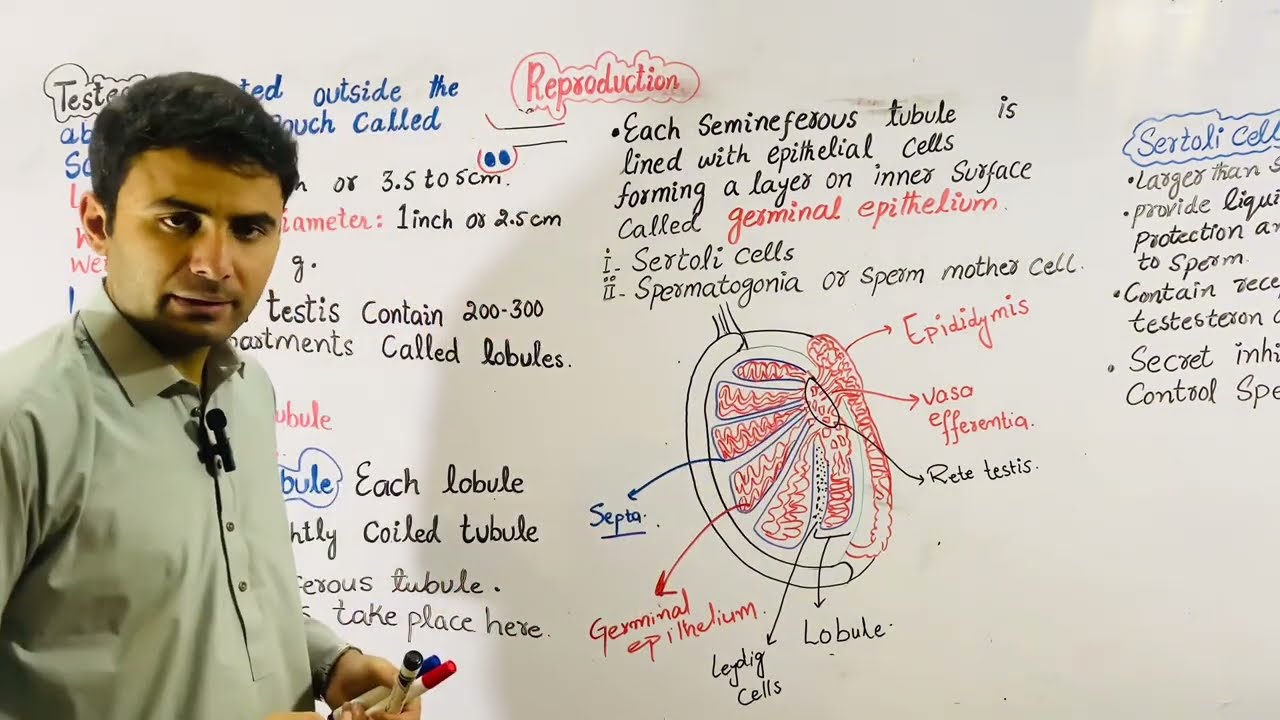 Reproduction
ted outside the
ab ouch Called
Sc
or 3.5 to 5cm.
iameter: 1inch or 2.5cm
We g.
testis Contain 200-300
artments Called lobules.
ubule
bule Each lobule
htly Coiled tubule
ferous tubule.
take place here.
•Each Semineferous tubule is
lined with epithelial cells
forming a layer on inner Surface
Called germinal epithelium.
i- Sertoli cells
ii- Spermatogonia or Sperm mother cell.
Epididymis
vasa
efferentia.
Rete testis.
Septa.
Germinal
epilhelium.
Leydig
cells
Lobule.
Sertoli Cell
•Larger than S
•provide liqui
Protection a
to Sperm.
•Contain rece
testesteron
•Secret inhi
Control Spe